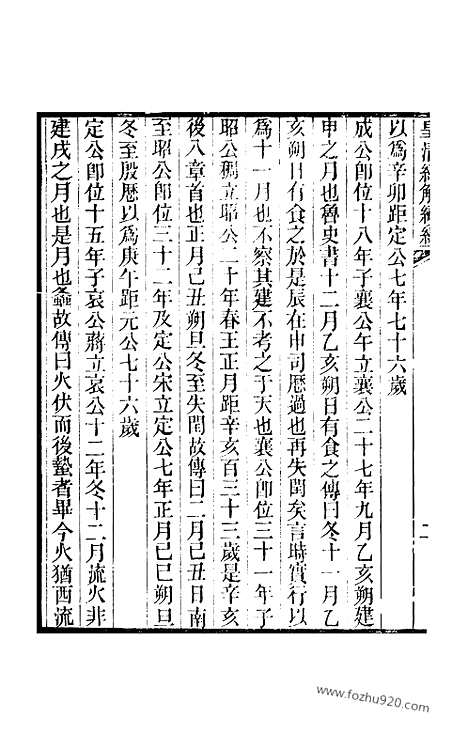 皇清經解續編
二
以爲辛卯距定公七年七十六歲
成公卽位十八年子襄公午立襄公二十七年九月乙亥朔建
申之月也魯史書十二月乙亥朔日有食之傳曰冬十一月乙
亥朔日有食之於是辰在申司厯過也再失閏矣言時實行以
爲十一月也不察其建不考之于天也襄公卽位三十一年子
昭公稠立昭公二十年春王正月距辛亥百三十三歲是辛亥
後八章首也正月己丑朔旦冬至失閏故傳曰二月己丑日南
至昭公卽位三十二年及定公宋立定公七年正月己巳朔旦
冬至殷厯以爲庚午距元公七十六歲
定公卽位十五年子哀公蔣立哀公十二年冬十二月流火非
建戌之月也是月也螽故傳曰火伏而後蟄者畢今火猶西流
www.fozhu920.com